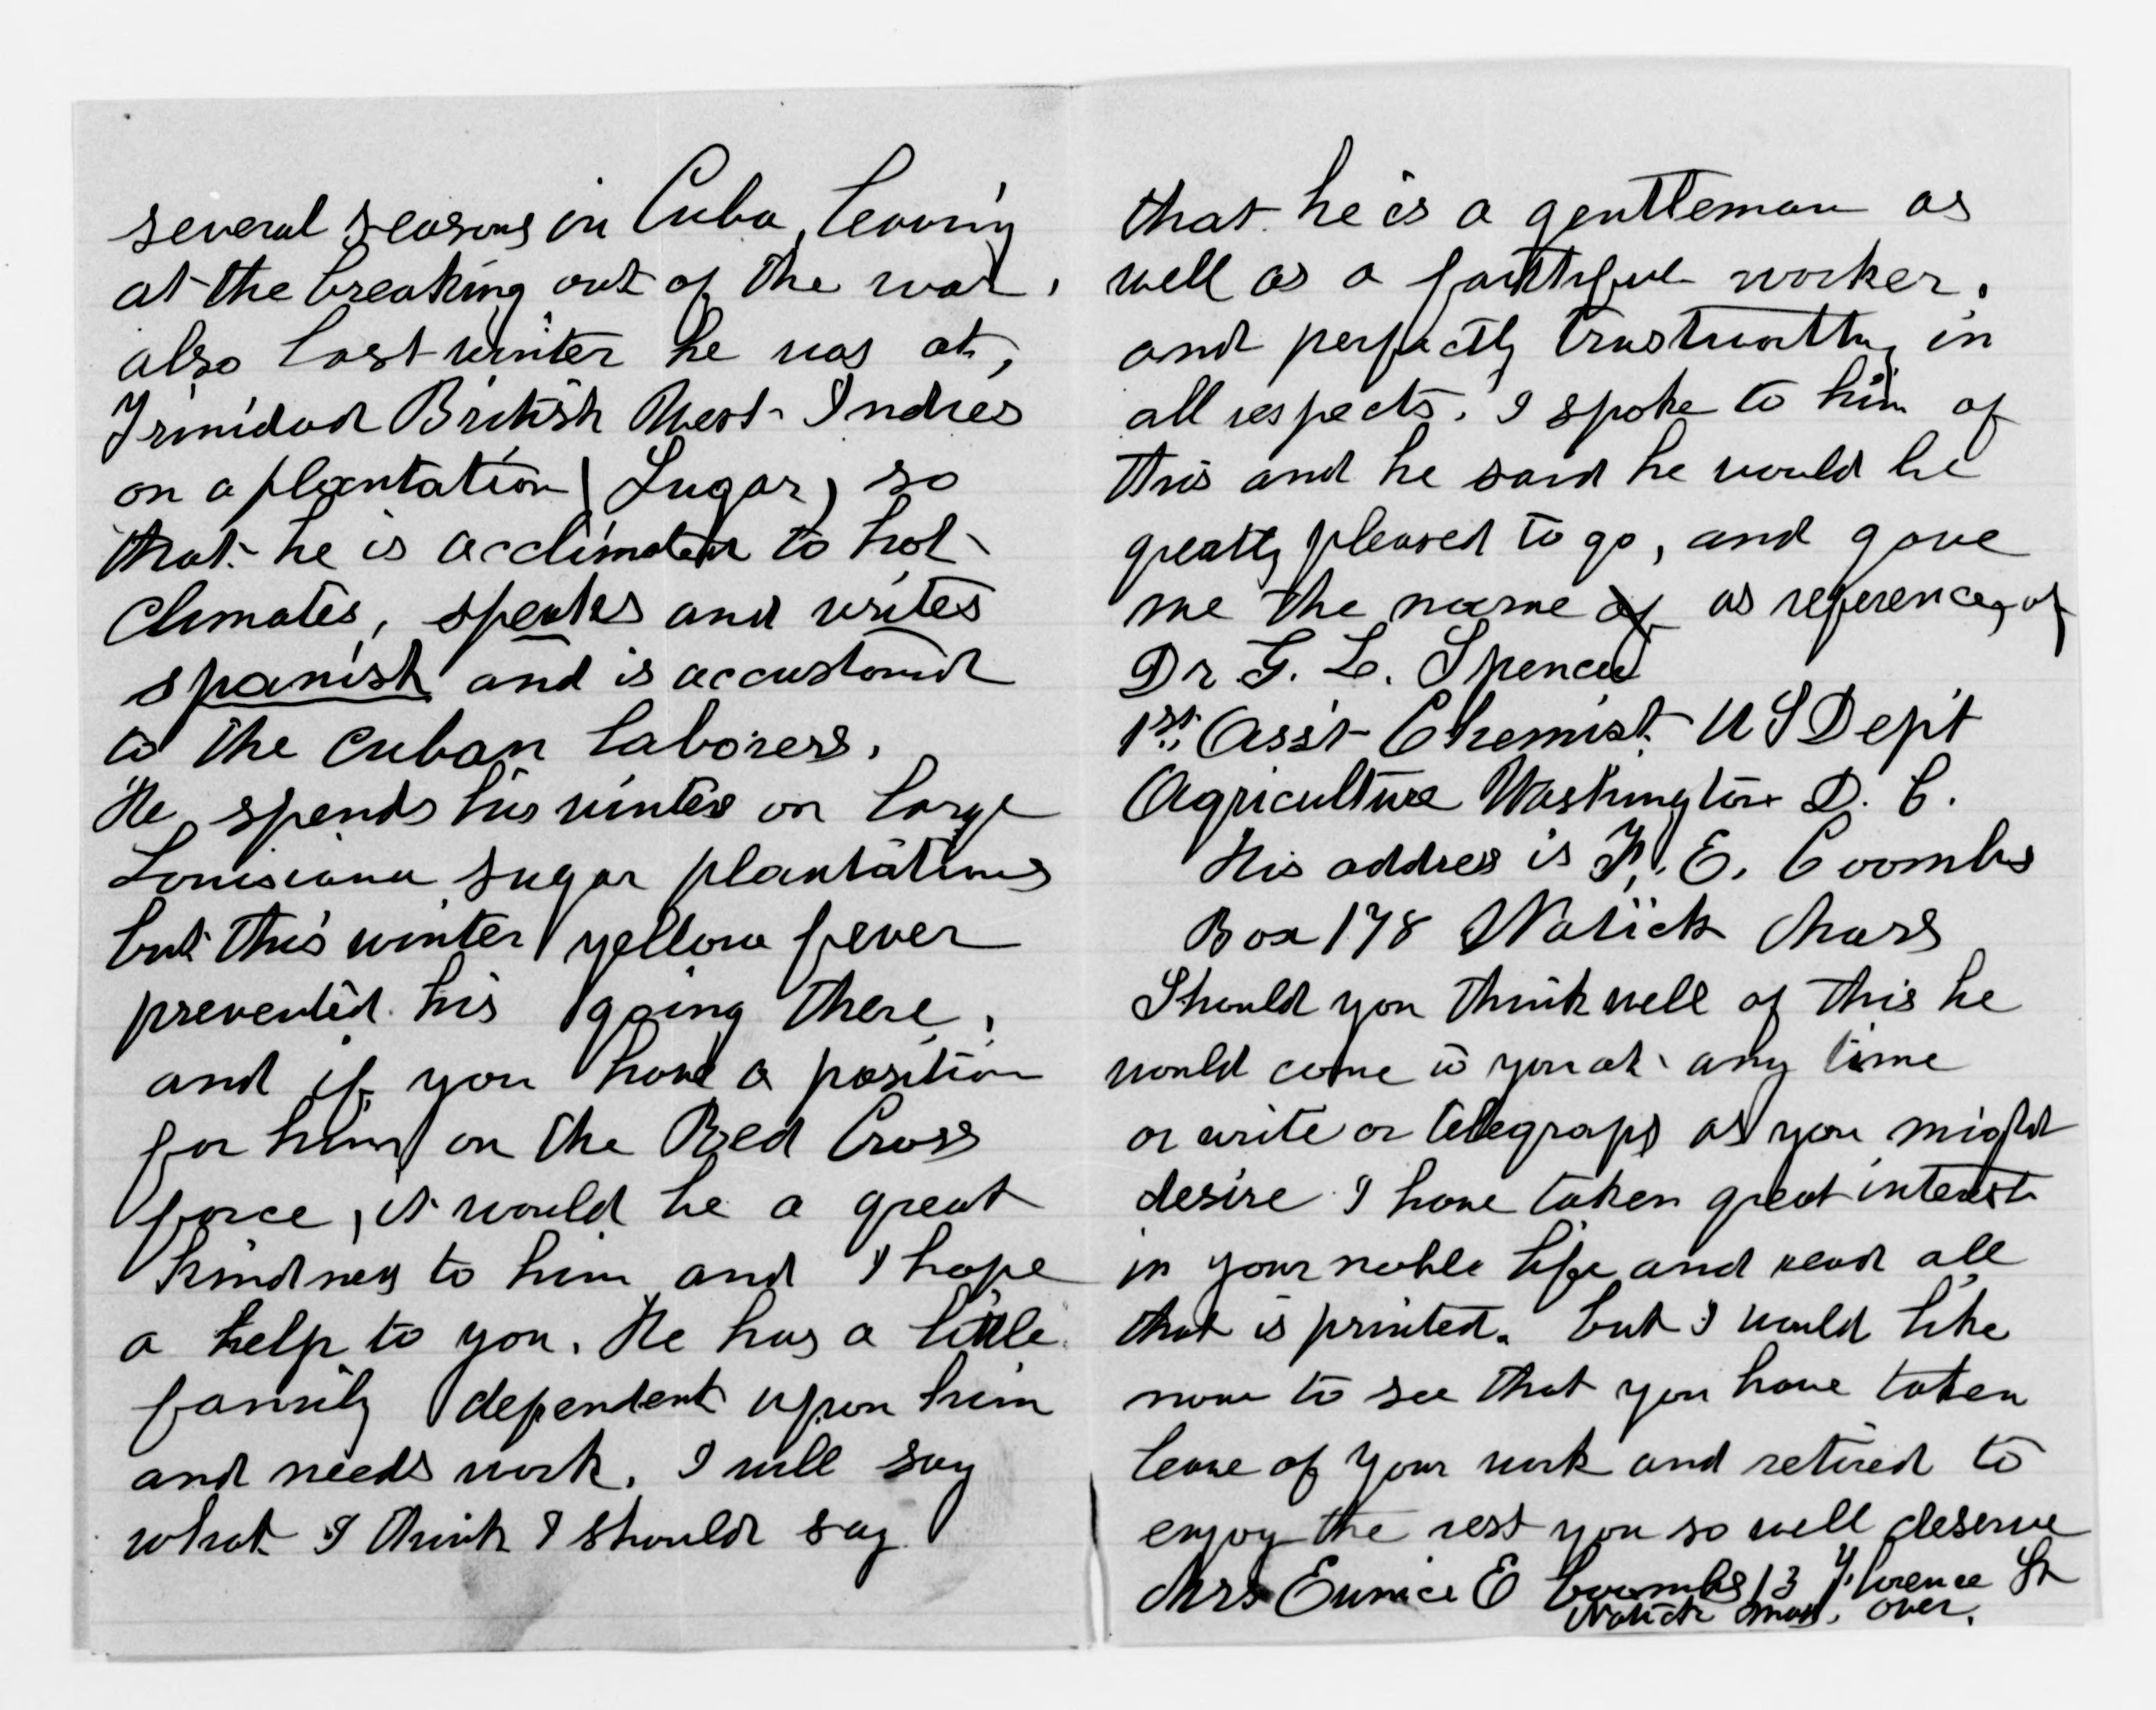 several seasons in Cuba, leaving
at the breaking out of the war.
also last winter he was at,
Trinidad British West Indies
on a plantation (Sugar) so
that he is acclimated to hot
Climates, speaks and writes
spanish and is accustomed
to the Cuban laborers.
He spends his winters on large
Louisiana sugar plantations
but this winter yellow fever
prevented his going there,
and if you have a position
for him on the Red Cross
force, it would be a great
kindness to him and I hope
a help to you. He has a little
family dependent upon him
and needs work. I will say
what I think I should say
that he is a gentleman as
well as a faithful worker.
and perfectly trustworthy in
all respects. I spoke to him of
this and he said he would be
greatly pleased to go, and gave
me the name of as reference, of
Dr G. L. Spencer
1st Ass't Chemist US Dep't
Agriculture Washington D. C.
His address is F. E. Coombs
Box 178 Natick Mass
Should you think well of this he
would come to you at any time
or write or telegraph as you might
desire I have taken great interest
in your noble life and read all
that is printed. but I would like
now to see that you have taken
leave of your work and retired to
enjoy the rest you so well deserve
Mrs Eunice E Coombs 13 Florence St
Natick Mass. over.